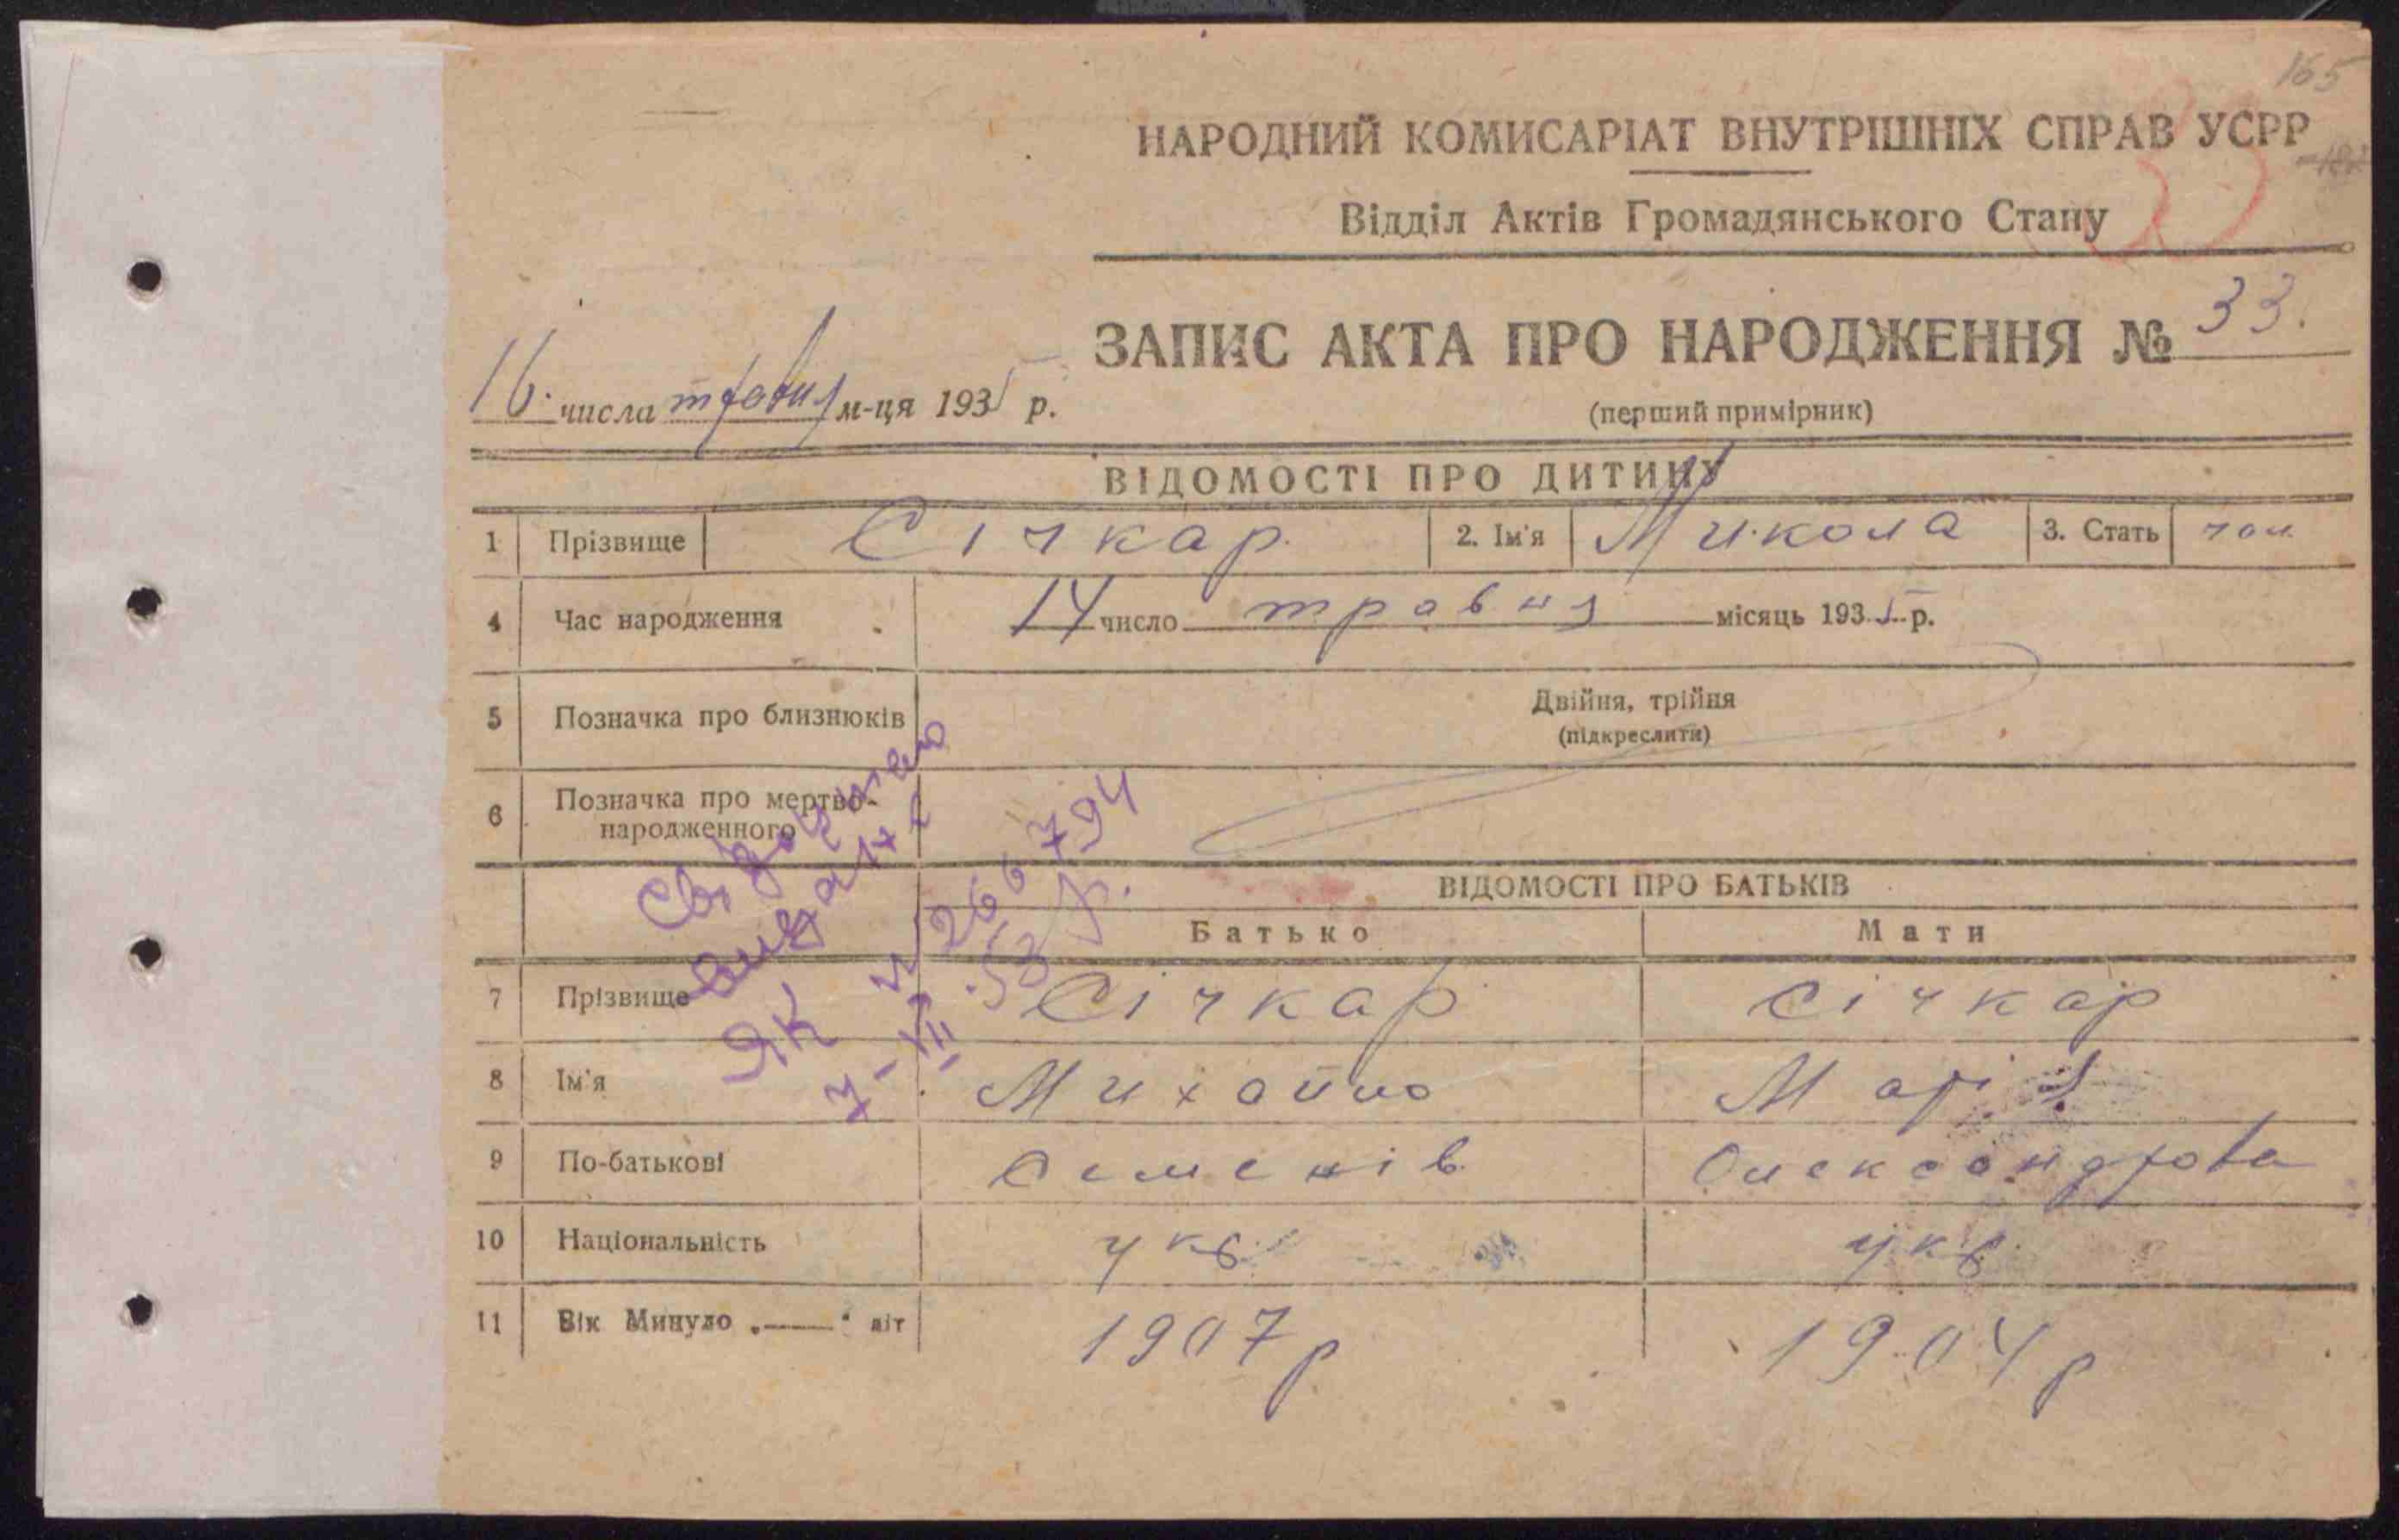 165
НАРОДНИЙ КОМИСАРІАТ ВНУТРІШНІХ СПРАВ УСРР
Відділ Актів Громадянського Стану
ЗАПИС АКТА ПРО НАРОДЖЕННЯ № 33.
16. числа травня м-ця 1935 р.
(перший примірник)
ВІДОМОСТІ ПРО ДИТИНУ
1 Прізвище Січкар 2. Ім'я Микола 3. Стать чол
4 Час народження 14 число травня місяць 1935 р.
5 Позначка про близнюків Двійня, трійня
(підкреслити)
6 Позначка про мертво-
народженного
ВІДОМОСТІ ПРО БАТЬКІВ
Батько Мати
7 Прізвище Січкар Січкар
8 Ім'я Михайло Марія
9 По-батькові Семенів Олександрова
10 Національність укр. укр.
11 Вік Минуло „ — " літ 1907 р 1904 р
ЯК № 266794
7-VII-53 р.